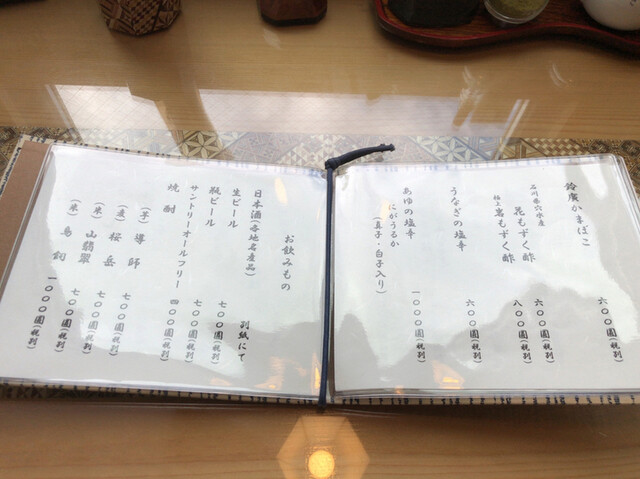 鈴廣かまぼこ 六〇〇圓(税別)
石川県穴水産
花もずく酢 六〇〇圓(税別)
極上 岩もずく酢 八〇〇圓(税別)
うなぎの塩辛 六〇〇圓(税別)
あゆの塩辛
にがうるか
(真子・白子入り) 一〇〇〇圓(税別)
お飲みもの
日本酒(各地名産品) 別紙にて
生ビール 七〇〇圓(税別)
瓶ビール 七〇〇圓(税別)
サントリーオールフリー 四〇〇圓(税別)
焼酎
(芋) 導師 七〇〇圓(税別)
(麦) 桜岳 七〇〇圓(税別)
(米) 山翡翠 七〇〇圓(税別)
(米) 鳥飼 一〇〇〇圓(税別)